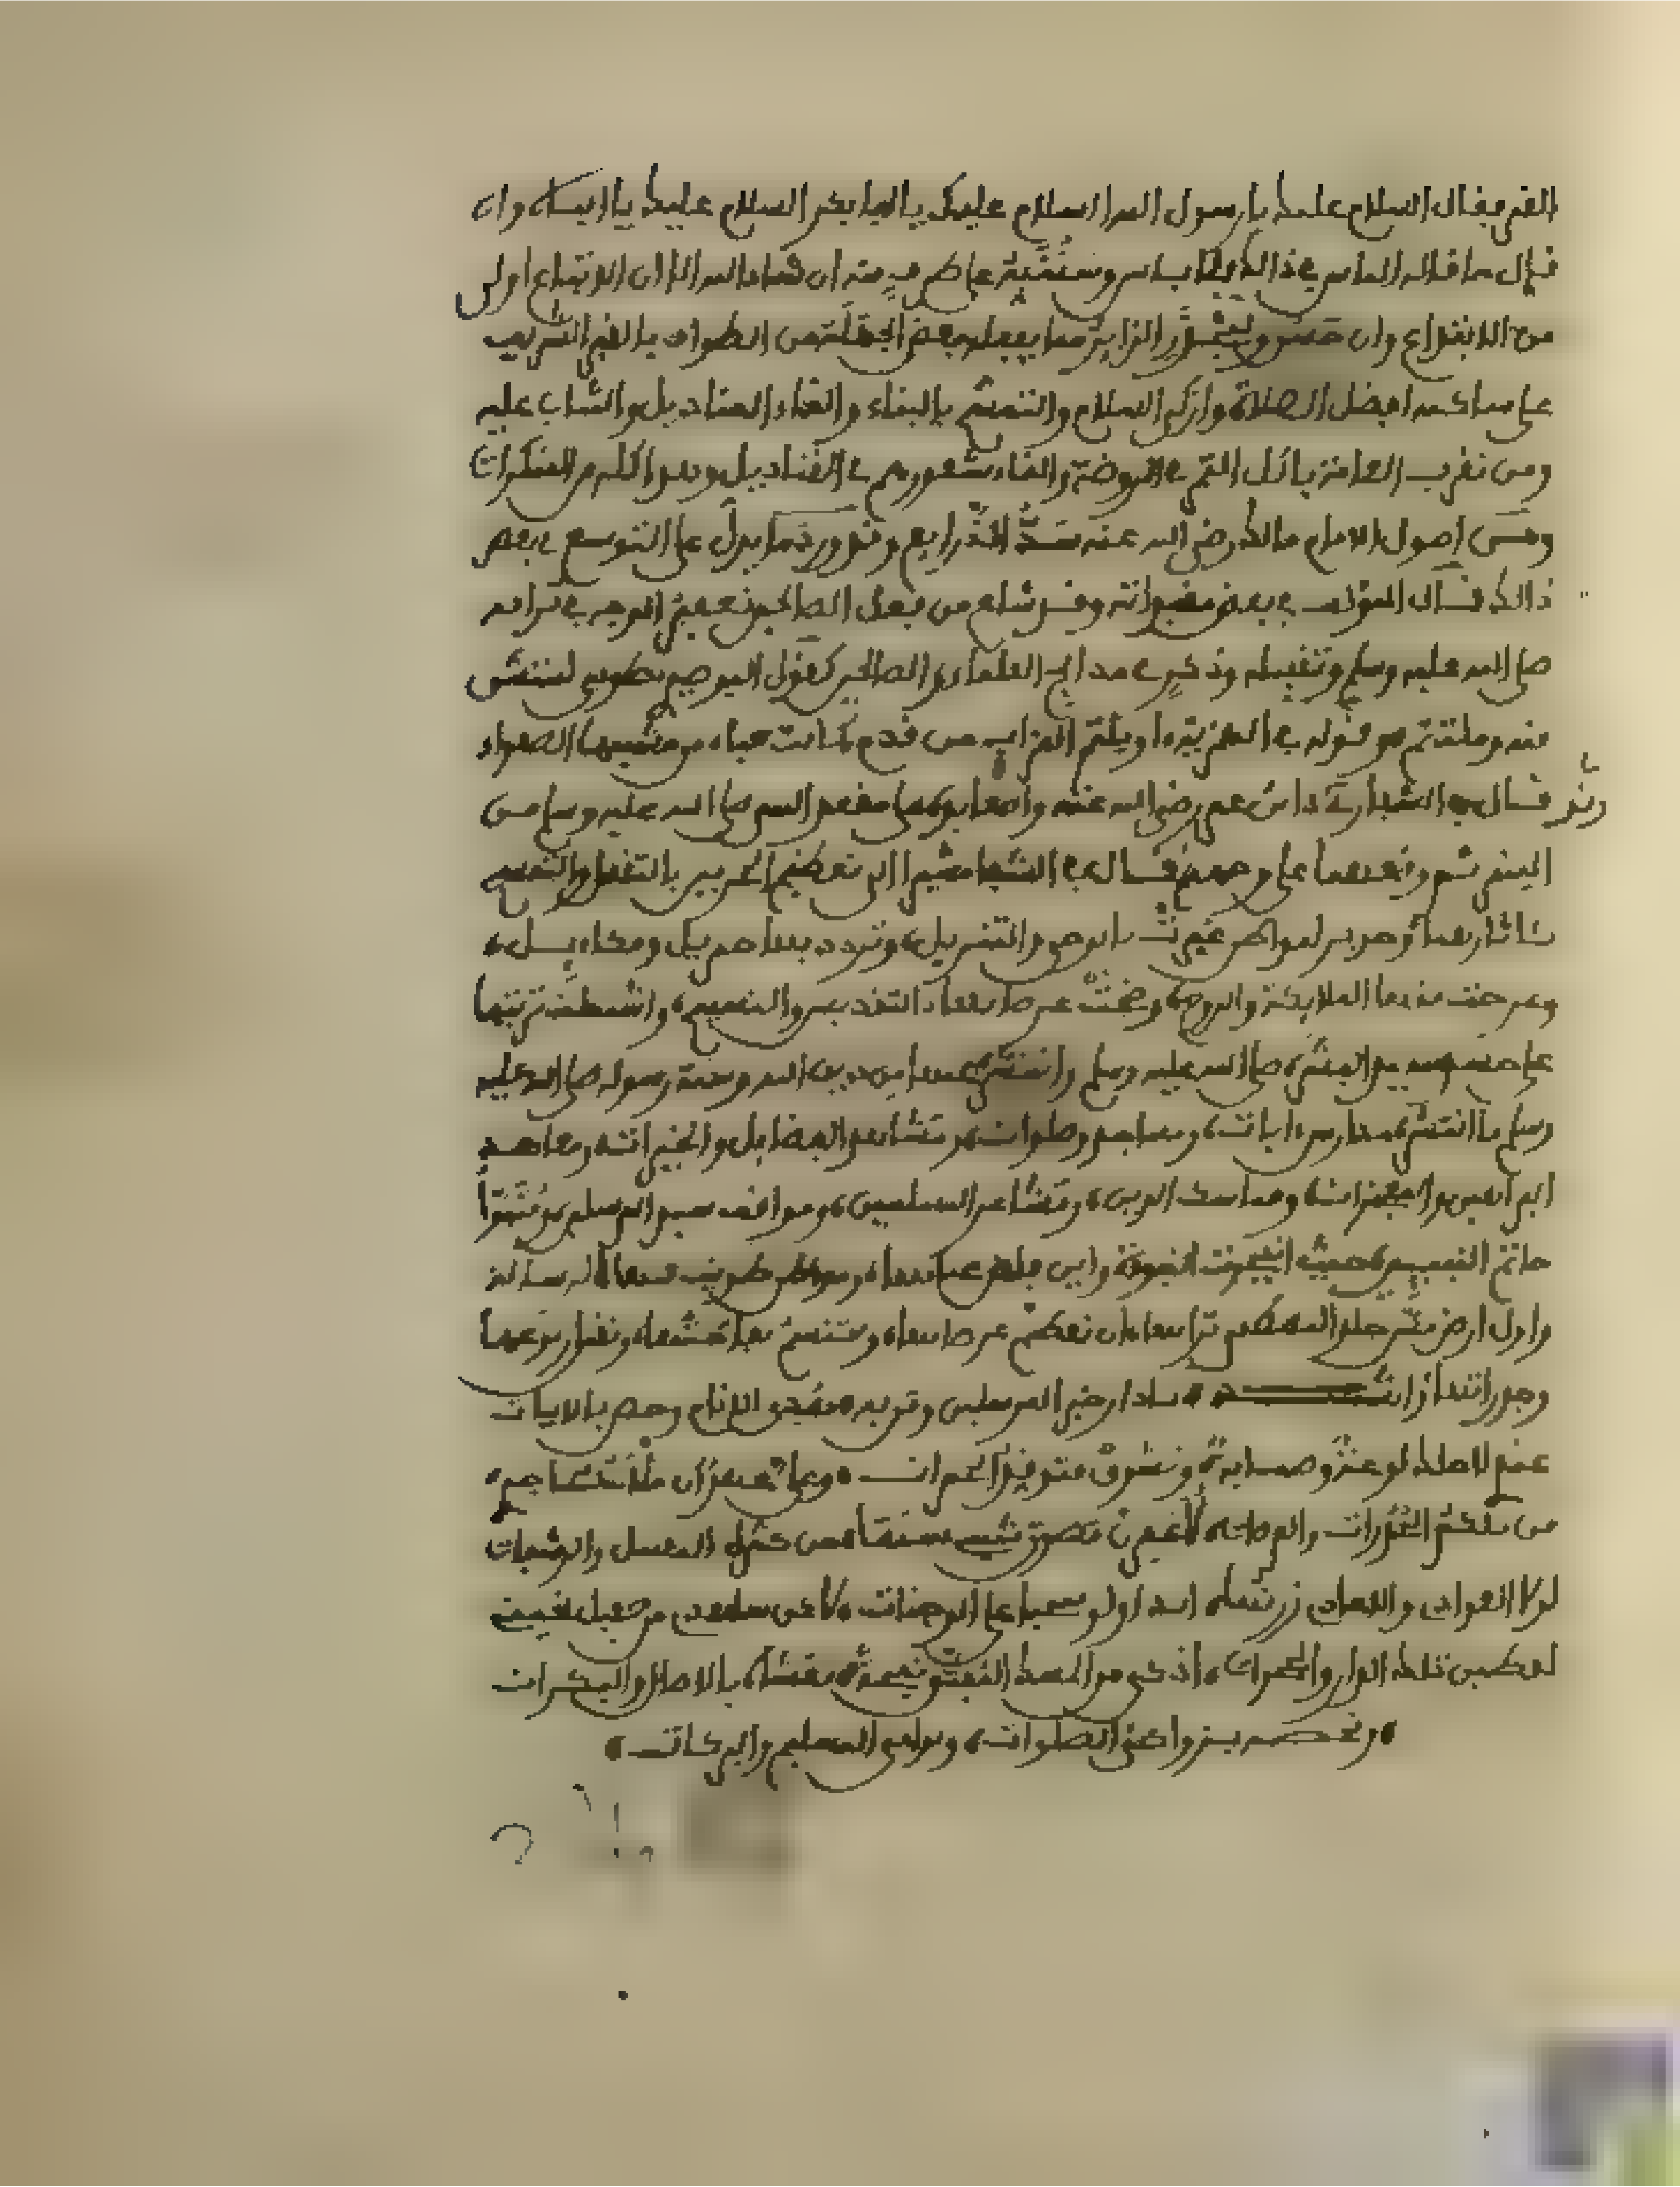 القبر فقال السلام عليك يا رسول الله السلام عليك يا ابا بكر السلام عليك يا ابتاه وان
قال ما قاله الناس في ذالك فلا باس به ان شاء الله الا ان الاتباع اولى
من الابتداع وان حسن وليحذر الزاير مما يفعله بعض الجهلة من الطواف بالقبر الشريف
على ساكنه افضل الصلاة وازكى السلام والتمسح بالبناء والقاء المناديل والثياب عليه
ومن تقرب العامة باكل التمر في الروضة والقاء شعورهم في القناديل وهذا كله من المنكرات
ومن اصول الامام مالك رضي الله عنه سد الذرايع وقد ورد ما يدل على التوسع في بعض
ذالك قال المؤلف في بعض وقد شاع من فعل الصالحين تعفير الوجه في ترابه
صلى الله عليه وسلم وتقبيله وذكره في مدايح العلماء والصالحين كقول البوصيري طوبى لمنتشق
منه وملتثم وقوله في الهمزية او بلثم التراب من قدم لانت حياء من مشيها الصفواء
قال في الشفا رءي ابن عمر رضي الله عنه واضعا يده على مقعد النبي صلى الله عليه وسلم من
المنبر ثم وضعها على وجهه قال في الشفا مشيرا الى تعظيم الحرمين
وجدير لمواطن عمرت بالوحي والتنزيل، وتردد بها جبريل وميكاءيل،
وعرجت منها الملايكة والروح، وضجت عرصاتها بالتقديس والتسبيح، واشتملت تربتها
على جسد سيد البشر، صلى الله عليه وسلم وانتشر عنها من دين الله وسنة رسوله صلى الله عليه
وسلم ما انتشر، مدارس ايات، ومساجد وصلوات، ومشاهد الفضايل والخيرات، ومعاهد
البراهين والمعجزات، ومناسك الدين، ومشاعر المسلمين، ومواقف سيد المرسلين، ومتبوأ
خاتم النبيين، حيث انفجرت النبوة، واين فاض عبابها، ومواطن طويت فيها الرسالة
واول ارض مس جلد المصطفى ترابها، ان تعظم عرصاتها، وتتنسم نفحاتها، وتقبل ربوعها
وجدراتها انشد ، يا دار خير المرسلين ومن به، هدي الانام وخص بالايات
عندي لاجلك لوعة وصبابة، وتشوق متوقد الجمرات، وعلي عهد ان ملأت محاجري،
من تلكم الجدرات والعرصات، لأعفرن مصون شيبي بينها، من كثرة التقبيل والرشفات
لولا العوادي والاعادي زرتها، ابدا ولو سحبا على الوجنات، لاكن ساهدي من حفيل تحيتي
لقطين تلك الدار والحجرات، اذكى من المسك المفتق نفحة، تغشاه بالاصال والبكرات
، وتخصه بزواكي الصلوات، ونوامي التسليم والبركات،